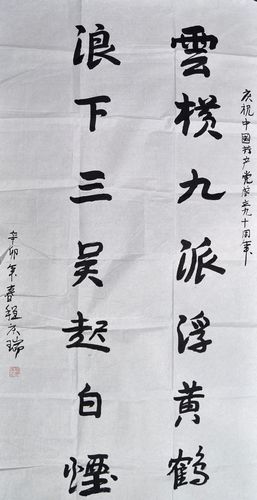 庆祝中国共产党成立九十周年
雲横九派浮黄鶴
浪下三吴起白煙
辛卯年春程庆瑞